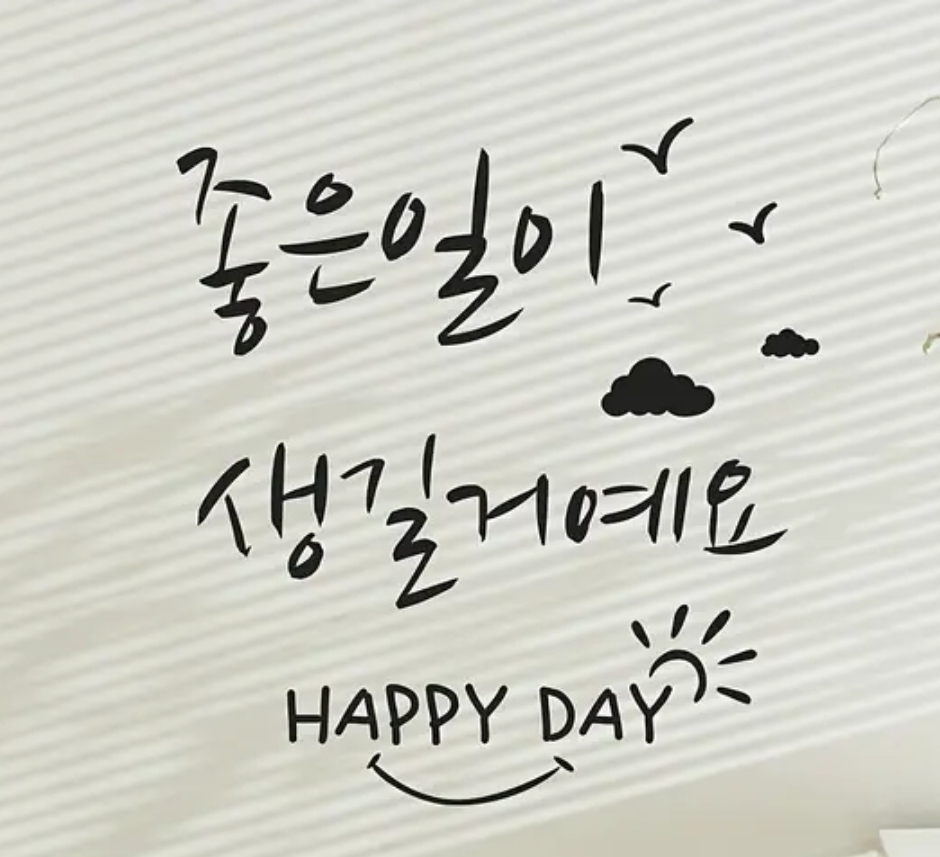 좋은일이
생길거예요
HAPPY DAY